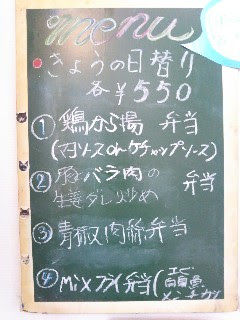 menu
きょうの日替り
各¥550
① 鶏から揚 弁当
(マヨソースorケチャップソース)
② 豚バラ肉の 弁当
生姜ダレ炒め
③ 青椒肉絲弁当
④ Mixフライ弁当(エビ
白身魚
メンチカツ